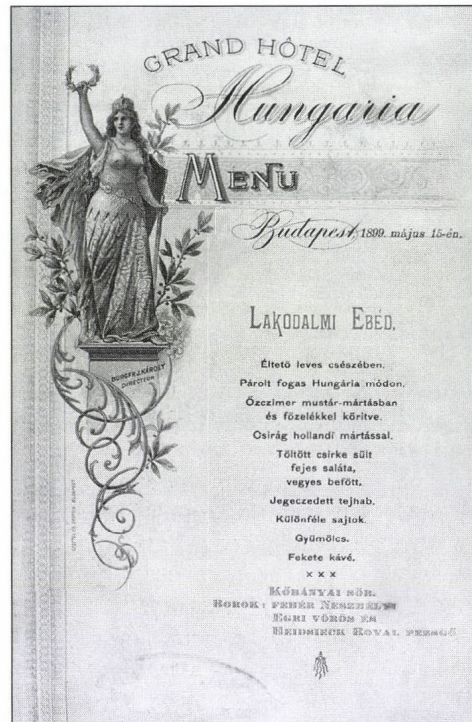 GRAND HÔTEL
Hungaria
MENU
Budapest, 1899. május 15-én.
LAKODALMI EBÉD.
KÁROLY
DIRECTEUR
Éltető leves csészében.
Párolt fogas Hungária módon.
Őzczimer mustár-mártásban
és főzelékkel körítve.
Csirág hollandi mártással.
Töltött csirke sült
fejes saláta,
vegyes befőtt.
Jegeczedett tejhab.
Különféle sajtok.
Gyümölcs.
Fekete kávé.
× × ×
KŐBÁNYAI SÖR.
BOROK: FEHÉR NESZMÉLYI
EGRI VÖRÖS ÉS
HEIDSIECK ROYAL PEZSGŐ